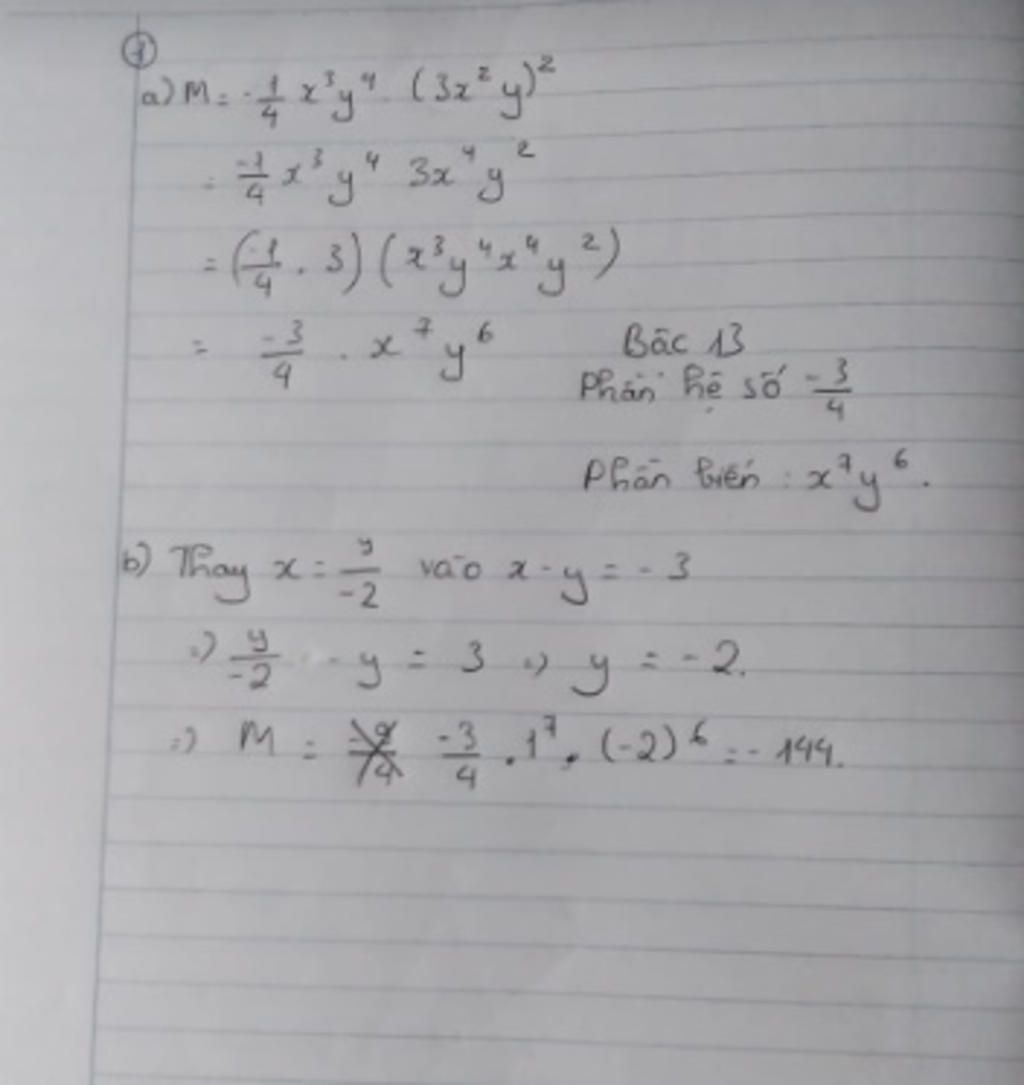 1
a) M = -1/4 x³y⁴ (3x²y)²
= -1/4 x³y⁴ 3x⁴y²
= (-1/4 . 3) (x³y⁴x⁴y²)
= -3/4 . x⁷y⁶ Bậc 13
Phần hệ số -3/4
Phần biến : x⁷y⁶.
b) Thay x = y/-2 vào x - y = - 3
=) y/-2 - y = 3 =) y = - 2.
=) M = -3/4 . 1⁷ . (-2)⁶ = - 144.